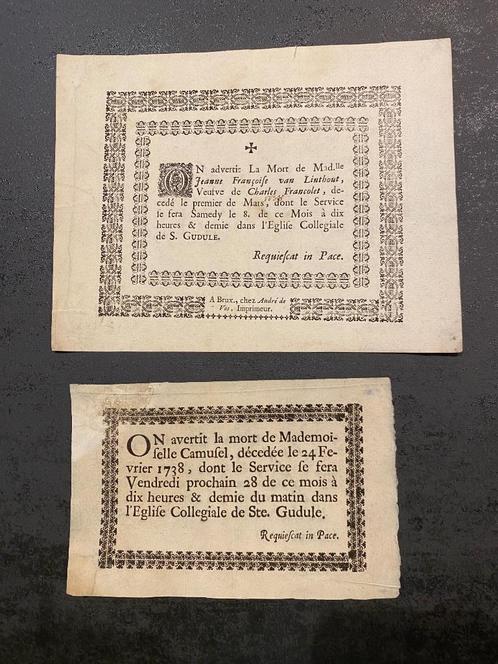 ✠
ON advertir La Mort de Mad.lle
Jeanne Françoise van Linthout,
Veutve de Charles Francolet, de-
cedé le premier de Mars, dont le Service
se fera Samedy le 8. de ce Mois à dix
heures & demie dans l'Eglise Collegiale
de S. GUDULE.
Requieſcat in Pace.
A Brux., chez André de
Vos, Imprimeur.
ON avertit la mort de Mademoi-
ſelle Camuſel, décedée le 24 Fe-
vrier 1738, dont le Service ſe fera
Vendredi prochain 28 de ce mois à
dix heures & demie du matin dans
l'Egliſe Collegiale de Ste. Gudule.
Requieſcat in Pace.